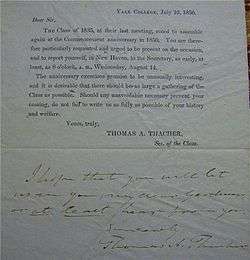 YALE COLLEGE, July 10, 1850.
Dear Sir,
THE Class of 1835, at their last meeting, voted to assemble
again at the Commencement anniversary in 1850. You are there-
fore particularly requested and urged to be present on the occasion,
and to report yourself, in New Haven, to the Secretary, as early, at
least, as 8 o'clock, A. M., Wednesday, August 14.
The anniversary exercises promise to be unusually interesting,
and it is desirable that there should be as large a gathering of the
Class as possible. Should any unavoidable necessity prevent your
coming, do not fail to write as fully as possible of your history
and welfare.
Yours, truly,
THOMAS A. THACHER,
Sec. of the Class.
I hope that you will let
us see you
or at least hear from you
Sincerely
Thomas A. Thacher